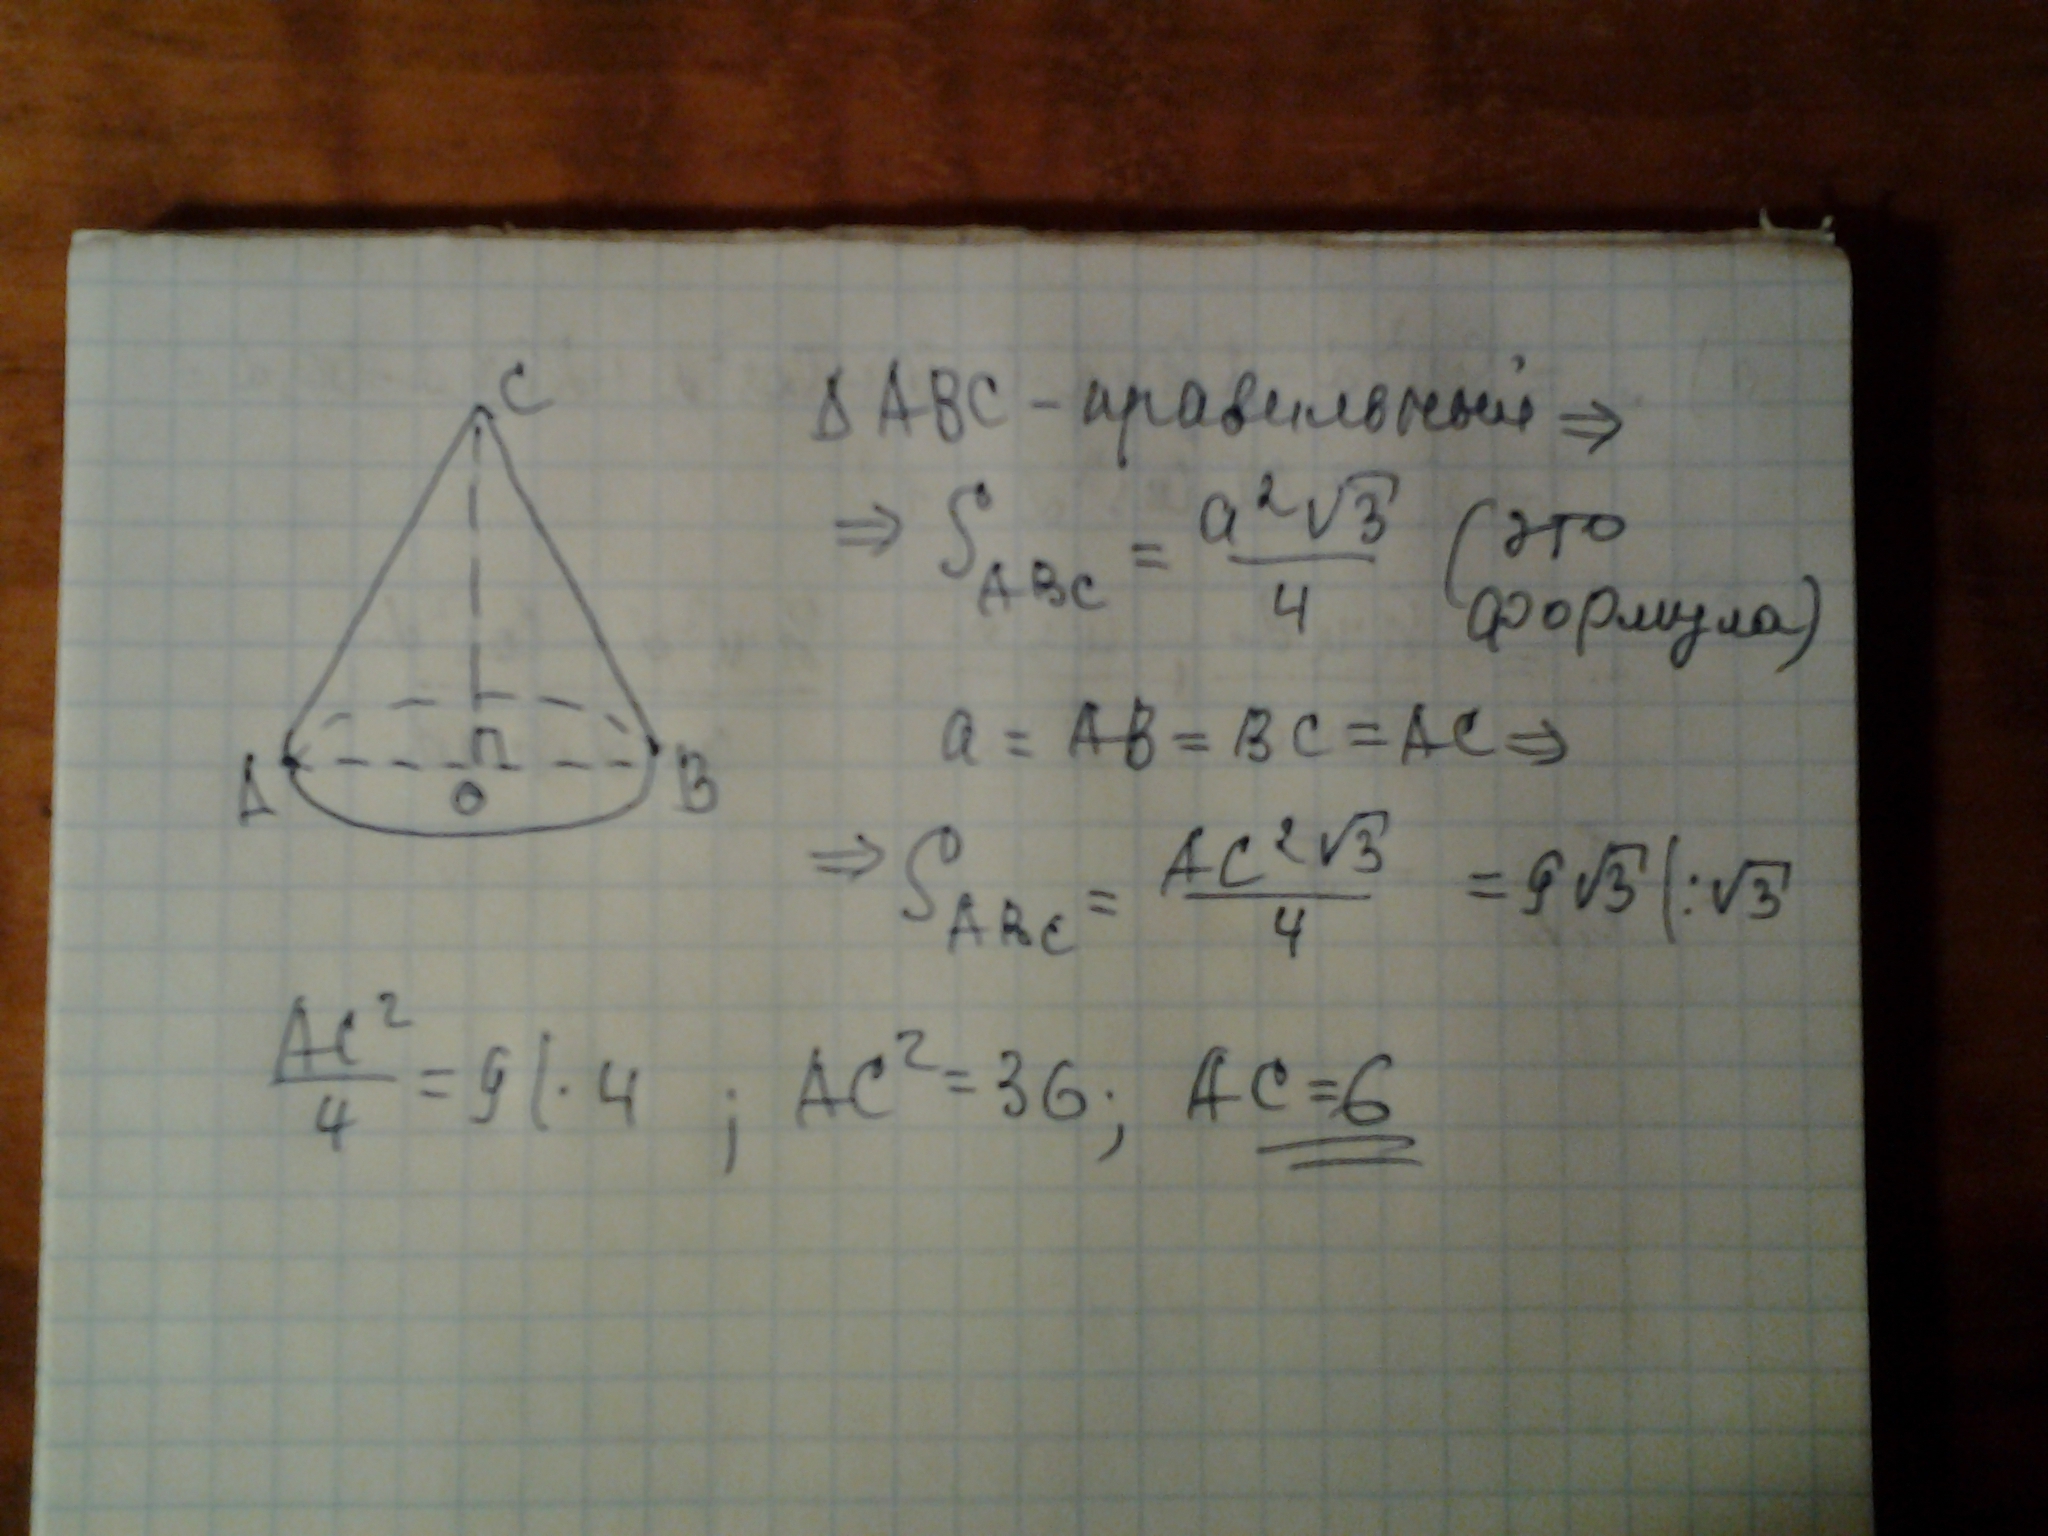 C
A
O
B
Δ ABC - правильный ⇒
⇒ S_ABC = a²√3/4 (это формула)
a = AB = BC = AC ⇒
⇒ S_ABC = AC²√3/4 = 9√3 | :√3
AC²/4 = 9 | · 4 ; AC² = 36; AC = 6